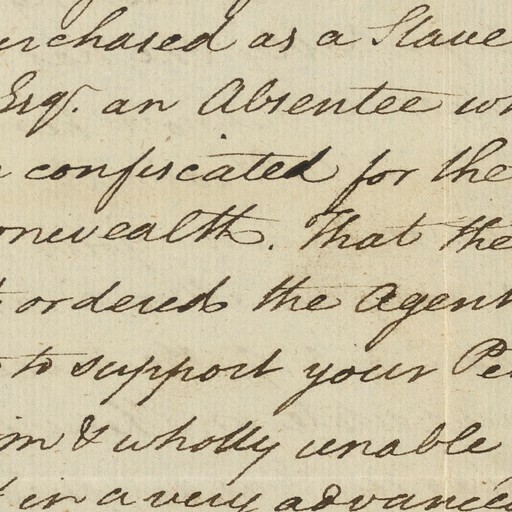 urchased as a Slave
Esqr. an Absentee wh
confiscated for the
onwealth. That the
ordered the Agent
to support your Pe
im & wholly unable
in a very advanced